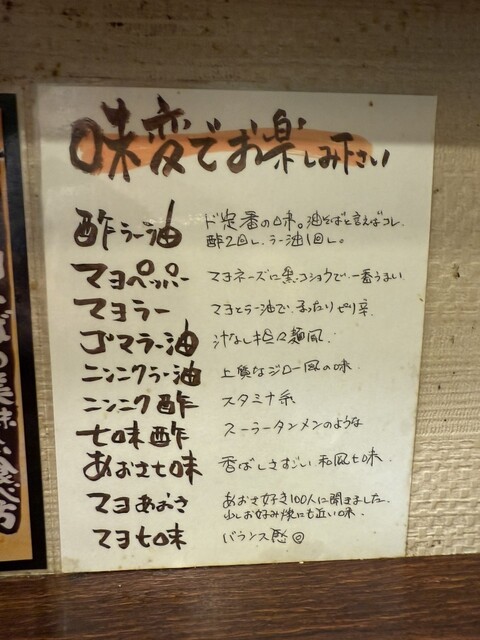 味変でお楽しみ下さい
酢ラー油 ド定番の味。油そばと言えばコレ.
酢2回し、ラー油1回し。
マヨペッパー マヨネーズに黒コショウで一番うまい
マヨラー マヨとラー油で、まったりピリ辛.
ゴマラー油 汁なし担々麺風.
ニンニクラー油 上質なジロー風の味.
ニンニク酢 スタミナ系
七味酢 スーラータンメンのような
あおさ七味 香ばしさすごい和風七味.
マヨあおさ あおさ好き100人に聞きました.
少しお好み焼にも近い味.
マヨ七味 バランス感◎
の美味 食べ方